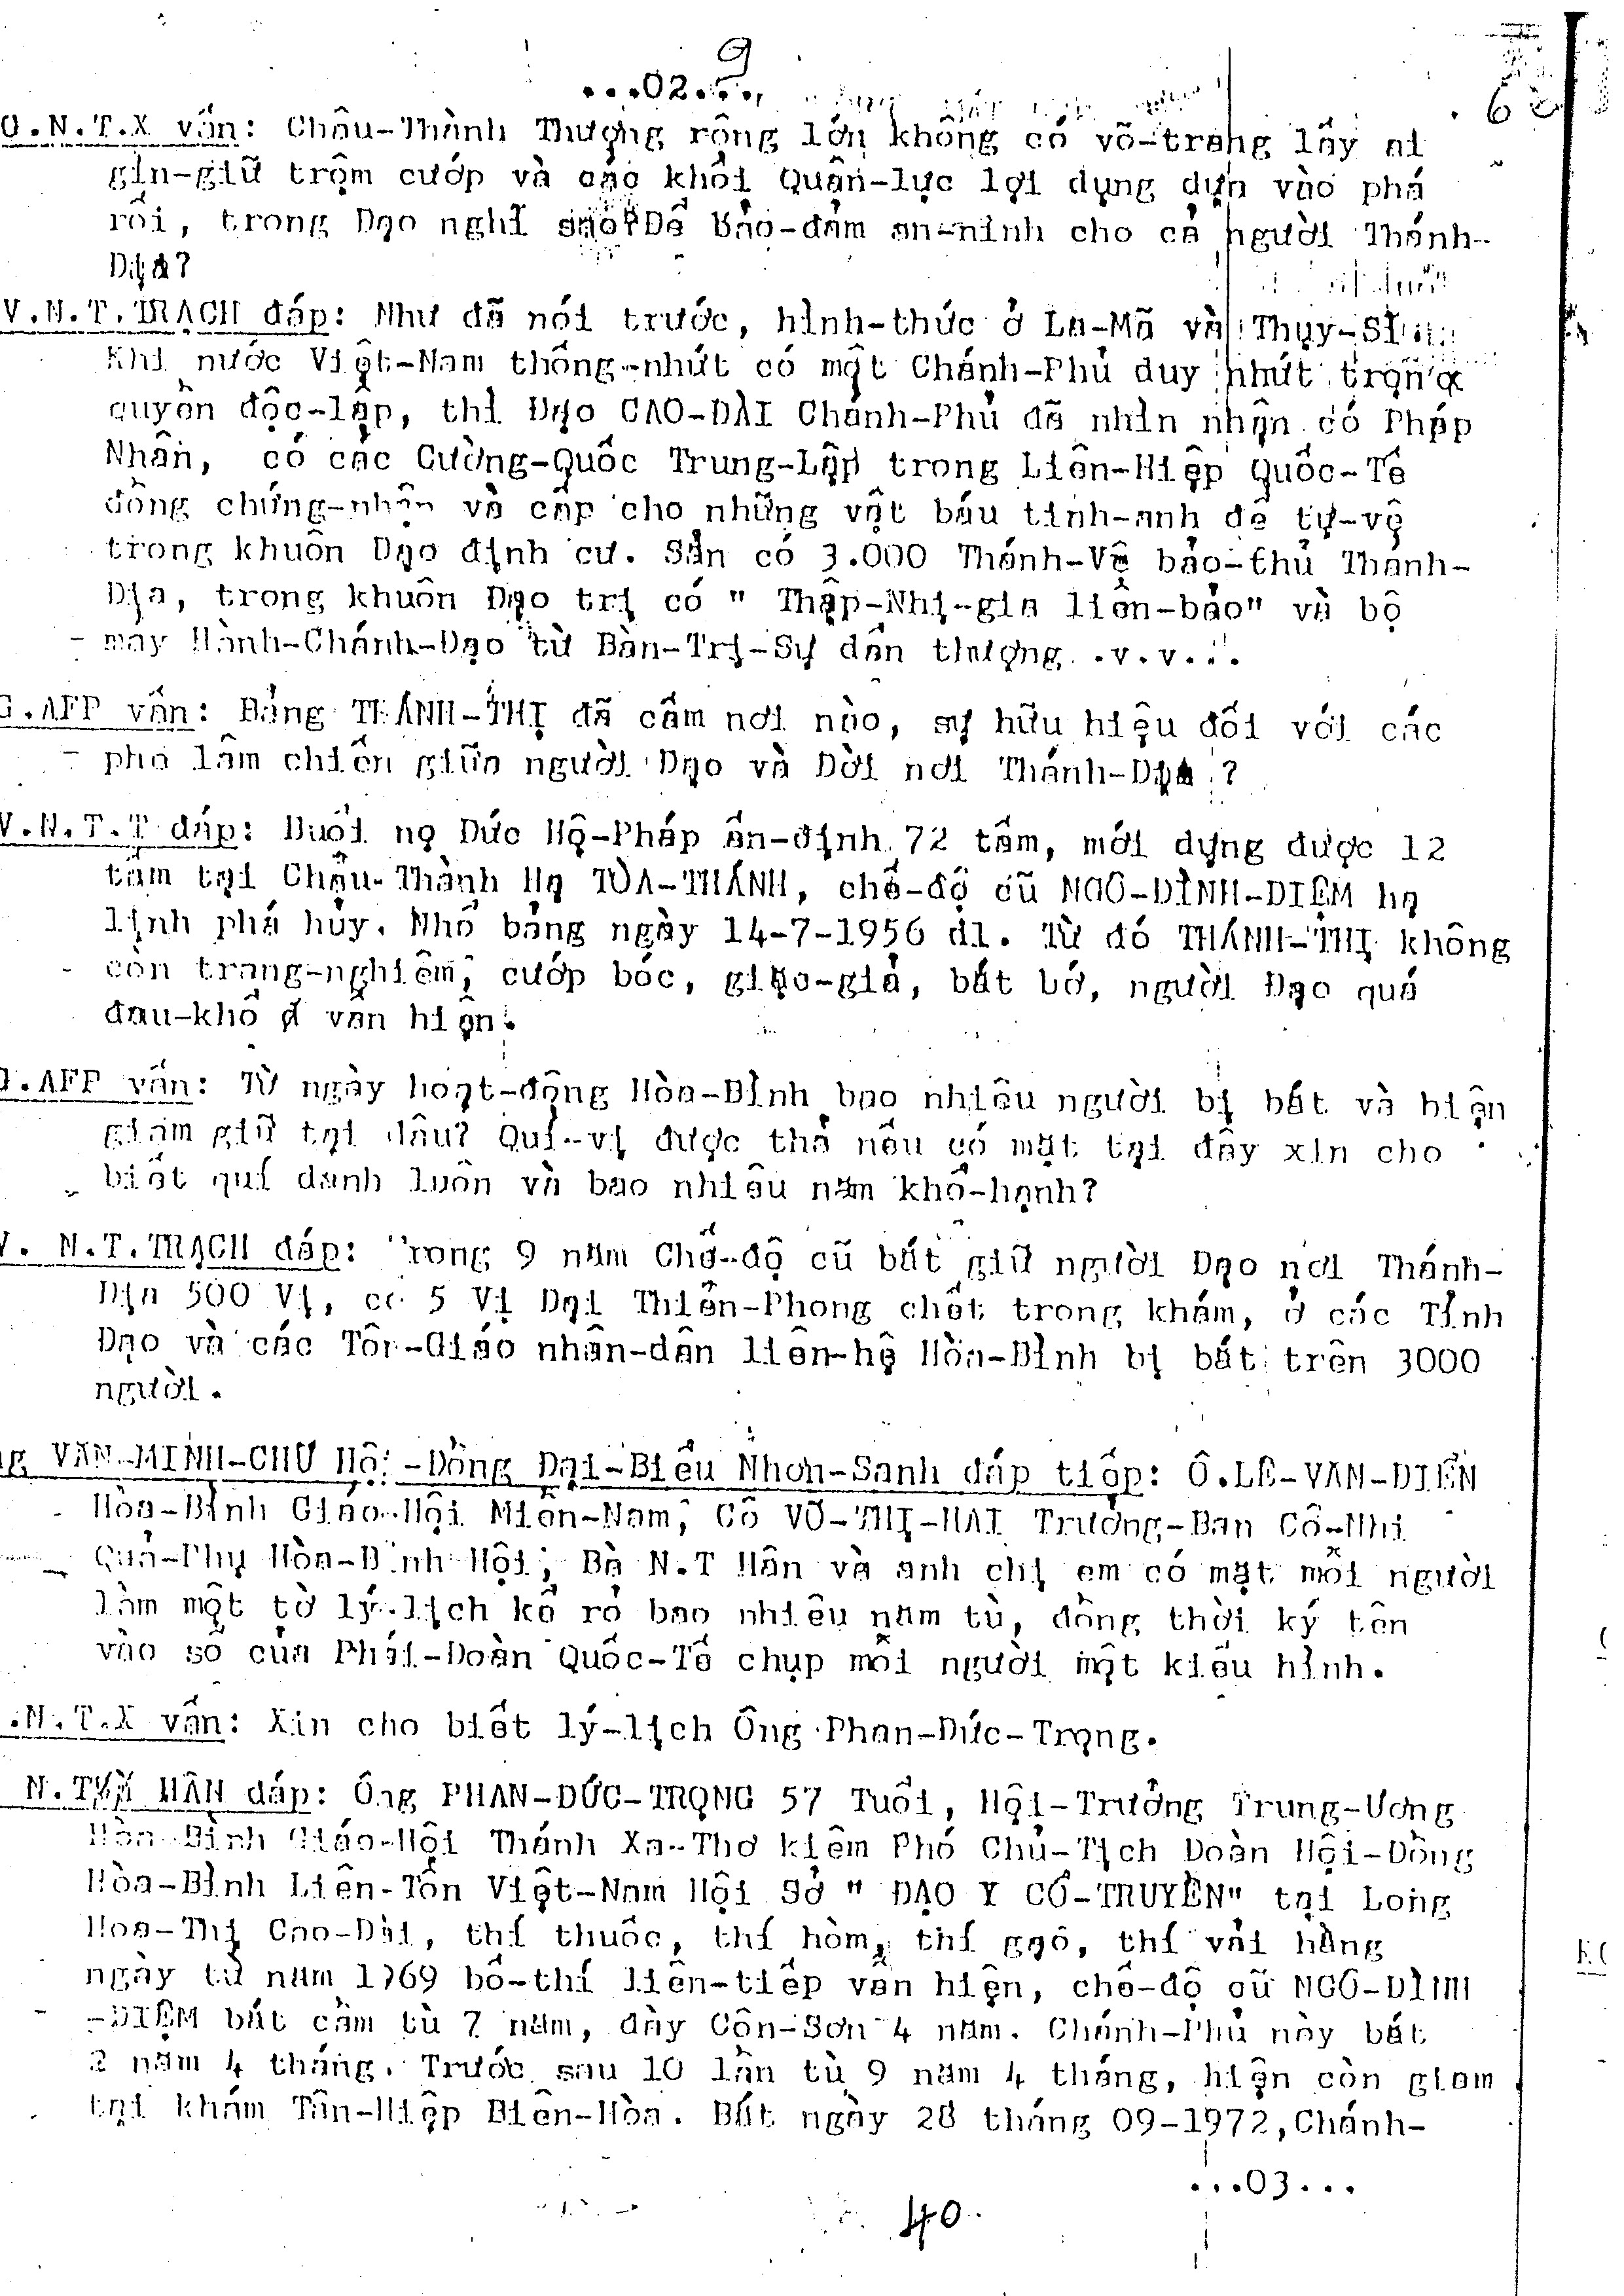 9
...02...
O.N.T.X vấn: Châu-Thành Thượng rộng lớn không có võ-trang lấy ai
gìn-giữ trộm cướp và các khối Quân-lực lợi dụng dựa vào phá
rối, trong Đạo nghĩ sao? Để bảo-đảm an-ninh cho cả người Thánh-
Địa?
V.N.T.TRẠCH đáp: Như đã nói trước, hình-thức ở La-Mã và Thụy-Sĩ
Khi nước Việt-Nam thống-nhứt có một Chánh-Phủ duy nhứt trọn
quyền độc-lập, thì Đạo CAO-ĐÀI Chánh-Phủ đã nhìn nhận có Pháp
Nhân, có các Cường-Quốc Trung-Lập trong Liên-Hiệp Quốc-Tế
đồng chứng-nhận và cấp cho những vật báu tinh-anh để tự-vệ
trong khuôn Đạo định cư. Sẵn có 3.000 Thánh-Vệ bảo-thủ Thánh-
Địa, trong khuôn Đạo trị có " Thập-Nhị-gia liên-bảo" và bộ
máy Hành-Chánh-Đạo từ Bàn-Trị-Sự dẫn thượng .v.v...
G.AFP vấn: Bảng THÁNH-THỊ đã cắm nơi nào, sự hữu hiệu đối với các
phe lâm chiến giữa người Đạo và Đời nơi Thánh-Địa ?
V.N.T.T đáp: Buổi nọ Đức Hộ-Pháp ấn-định 72 tấm, mới dựng được 12
tấm tại Châu-Thành Nọ TÒA-THÁNH, chế-độ cũ NGÔ-ĐÌNH-DIỆM hạ
lịnh phá hủy. Nhổ bảng ngày 14-7-1956 dl. Từ đó THÁNH-THỊ không
còn trang-nghiêm, cướp bóc, giặc-giã, bắt bớ, người Đạo quá
đau-khổ vẫn hiện.
G.AFP vấn: Từ ngày hoạt-động Hòa-Bình bao nhiêu người bị bắt và hiện
giam giữ tại đâu? Quí-vị được thả nếu có mặt tại đây xin cho
biết quí danh luôn và bao nhiêu năm khổ-hạnh?
V. N.T.TRẠCH đáp: Trong 9 năm Chế-độ cũ bắt giữ người Đạo nơi Thánh-
Địa 500 Vị, có 5 Vị Đại Thiên-Phong chết trong khám, ở các Tỉnh
Đạo và các Tôn-Giáo nhân-dân liên-hệ Hòa-Bình bị bắt trên 3000
người.
VĂN-MINH-CHƯ Hội-Đồng Đại-Biểu Nhơn-Sanh đáp tiếp: Ô.LÊ-VĂN-DIỄN
Hòa-Bình Giáo-Hội Miền-Nam, Cô VÕ-THỊ-HAI Trưởng-Ban Cô-Nhi
Quả-Phụ Hòa-Bình Hội, Bà N.T Hân và anh chị em có mặt mỗi người
làm một tờ lý-lịch kể rỏ bao nhiêu năm tù, đồng thời ký tên
vào sổ của Phái-Đoàn Quốc-Tế chụp mỗi người một kiểu hình.
.N.T.X vấn: Xin cho biết lý-lịch Ông Phan-Đức-Trọng.
HÂN đáp: Ông PHAN-ĐỨC-TRỌNG 57 Tuổi, Hội-Trưởng Trung-Ương
Hòa-Bình Giáo-Hội Thánh Xa-Thơ kiêm Phó Chủ-Tịch Đoàn Hội-Đồng
Hòa-Bình Liên-Tôn Việt-Nam Hội Sở " ĐẠO Y CỔ-TRUYỀN" tại Long
Hoa-Thị Cao-Đài, thí thuốc, thí hòm, thí gạo, thí vải hằng
ngày từ năm 1969 bố-thí liên-tiếp vẫn hiện, chế-độ cũ NGÔ-ĐÌNH
-DIỆM bắt cầm tù 7 năm, đày Côn-Sơn 4 năm. Chánh-Phủ này bắt
2 năm 4 tháng. Trước sau 10 lần tù 9 năm 4 tháng, hiện còn giam
tại khám Tân-Hiệp Biên-Hòa. Bắt ngày 28 tháng 09-1972, Chánh-
...03...
40